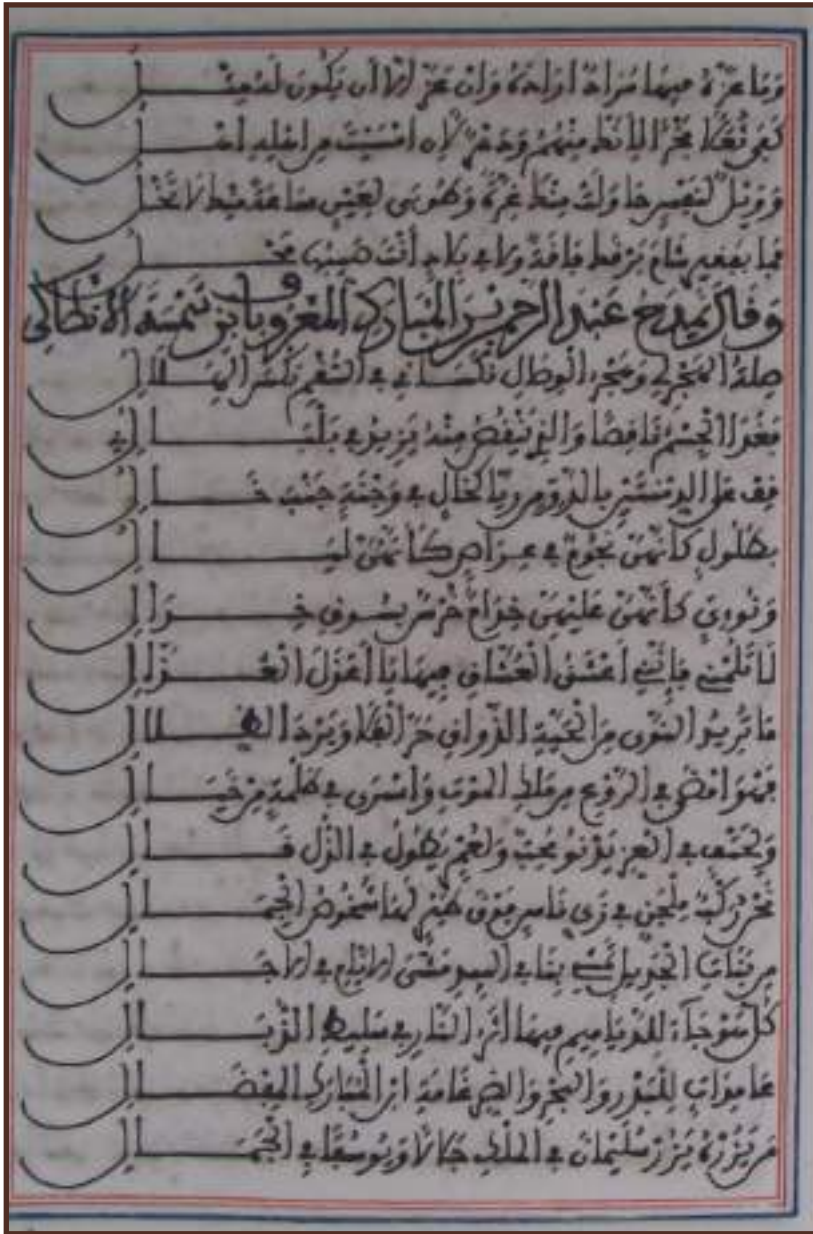 وَمَا عَزَّهُ فِيهَا مُرَادٌ أَرَادَهُ وَإِنْ عَزَّ إِلَّا أَن يَكُونَ لَهُ مِثْلُ
كَفَى ثُعَلًا فَخْرًا بِأَنَّكَ مِنْهُمُ وَدَهْرٌ لِأَن أَمْسَيْتَ مِن أَهْلِهِ أَهْلُ
وَوَيْلٌ لِنَفْسٍ حَاوَلَتْ مِنْكَ غِرَّةً وَطُوبَى لِعَيْنٍ سَاعَةً مِنْكَ لَا تَخْلُ
فَمَا بِفَقِيرٍ شَامَ بَرْقَكَ فَاقَةٌ وَلَا فِي بِلَادٍ أَنْتَ صَيِّبُهَا مَحْلُ
وَقَالَ يَمْدَحُ عَبْدَ الرَّحْمَنِ بْنَ الْمُبَارَكِ الْمَعْرُوفَ بِابْنِ شَمْسَةَ الْأَنْطَاكِي
صِلَةُ الْهَجْرِ لِي وَهَجْرُ الْوِصَالِ نَكَسَانِي فِي السُّقْمِ نَكْسَ الْهِلَالِ
فَغَدَا الْجِسْمُ نَاقِصًا وَالَّذِي يَنْقُصُ مِنْهُ يَزِيدُ فِي بَلْبَالِي
قِفْ عَلَى الدِّمْنَتَيْنِ بِالدَّوِّ مِن رَيَّا كَخَالٍ فِي وَجْنَةٍ جَنْبَ خَالِ
بِطُلُولٍ كَأَنَّهُنَّ نُجُومٌ فِي عِرَاصٍ كَأَنَّهُنَّ لَيَالِ
وَنُؤِيٍّ كَأَنَّهُنَّ عَلَيْهِنَّ خِدَامٌ خُرْسٌ بِسُوقٍ خِدَالِ
لَا تَلُمْنِي فَإِنَّنِي أَعْشَقُ الْعُشَّاقِ فِيهَا يَا أَعْذَلَ الْعُذَّالِ
مَا تُرِيدُ النَّوَى مِنَ الْحَيَّةِ الذَّوَّاقِ حَرَّ الْفَلَا وَبَرْدَ الظِّلَالِ
فَهْوَ أَمْضَى فِي الرَّوْعِ مِن مَلَكِ الْمَوْتِ وَأَسْرَى فِي ظُلْمَةٍ مِنْ خَيَالِ
وَلِحَتْفٍ فِي الْعِزِّ يَدْنُو مُحِبٌّ وَلِعُمْرٍ يَطُولُ فِي الذُّلِّ قَالِ
نَحْنُ رَكْبٌ مِلْجِنِّ فِي زَيِّ نَاسٍ فَوْقَ طَيْرٍ لَهَا شُخُوصُ الْجِمَالِ
مِن بَنَاتِ الْجَدِيلِ تَمْشِي بِنَا فِي الْبِيدِ مَشْيَ الْأَيَّامِ فِي الْآجَالِ
كُلُّ هَوْجَاءَ لِلدَّيَامِيمِ فِيهَا أَثَرُ النَّارِ فِي سَلِيطِ الذُّبَالِ
عَامِدَاتٍ لِلْبَدْرِ وَالْبَحْرِ وَالضِّرْغَامَةِ ابْنِ الْمُبَارَكِ الْمِفْضَالِ
مَن يَزُرْهُ يَزُرْ سُلَيْمَانَ فِي الْمُلْكِ جَلَالًا وَيُوسُفًا فِي الْجَمَالِ